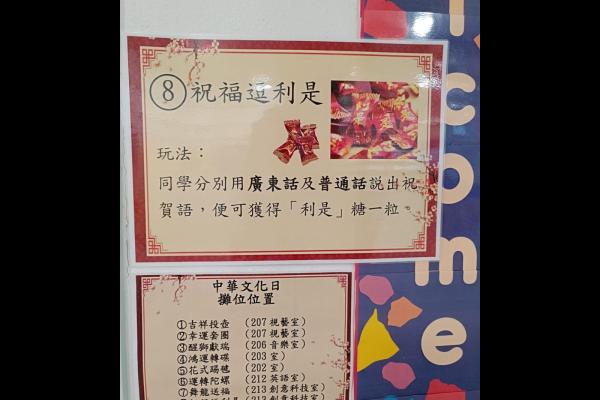 ⑧祝福逗利是
玩法：
同學分別用廣東話及普通話說出祝
賀語，便可獲得「利是」糖一粒。
中華文化日
攤位位置
①吉祥投壺 (207 視藝室)
②幸運套圈 (207 視藝室)
③醒獅獻瑞 (206 音樂室)
④鴻運轉碟 (203 室)
⑤花式踢毽 (202 室)
⑥運轉陀螺 (212 英語室)
⑦舞龍送福 (213 創意科技室)
come